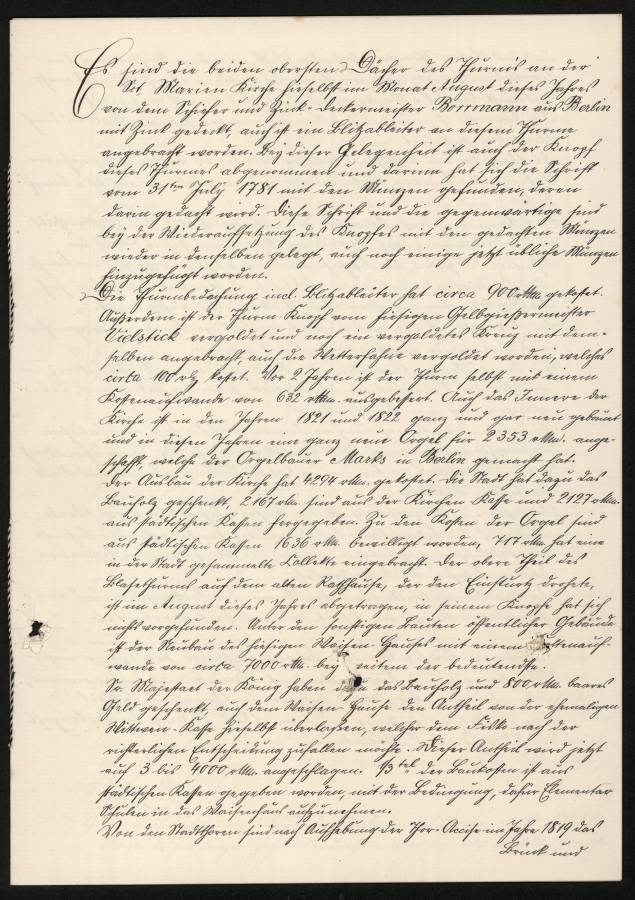 Es sind die beiden obersten Dächer des Thurms an der
Sct. Marien Kirche hieselbst im Monat August dieses Jahres
von dem Schiefer und Zink-Deckermeister Borrmann aus Berlin
mit Zink gedeckt, auch ist ein Blitzableiter an diesem Thurme
angebracht worden. Bey dieser Gelegenheit ist auch der Knopf
dieses Thurmes abgenommen und darinn hat sich die Schrift
vom 31ten July 1781 mit den Münzen gefunden, deren
darin gedacht wird. Diese Schrift und die gegenwärtige sind
bey der Wiederaufsetzung des Knopfes mit den gedachten Münzen
wieder in denselben gelegt, auch noch einige jetzt übliche Münzen
hinzugefügt worden.
Die Thurmbedachung incl. Blitzableiter hat circa 900 rthlr. gekostet.
Außerdem ist der Thurm Knopf vom hiesigen Gelbgießermeister
Vielstick vergoldet und noch ein vergoldetes Kreuz mit dem-
selben angebracht, auch die Wetterfahne vergoldet worden, welches
circa 100 rtl. kostet. Vor 2 Jahren ist der Thurm selbst mit einem
Kostenaufwande von 632 rthlr. ausgebessert. Auch das Innere der
Kirche ist in den Jahren 1821 und 1822 ganz und gar neu gebauet
und in diesen Jahren eine ganz neue Orgel für 2353 rthlr. ange-
schafft, welche der Orgelbauer Marks in Berlin gemacht hat.
Der Ausbau der Kirche hat 4294 rthlr. gekostet. Die Stadt hat dazu das
Bauholz geschenkt, 2167 rthlr. sind aus der Kirchen Kasse und 2127 rthlr.
aus städtischen Kassen hergegeben. Zu den Kosten der Orgel sind
aus städtischen Kassen 1636 rthlr. bewilligt worden, 717 rthlr. hat eine
in der Stadt gesammelte Collekte eingebracht. Der obere Theil des
Blasethurms auf dem alten Rathhause, der den Einsturtz drohete,
ist im August dieses Jahres abgetragen, in seinem Knopfe hat sich
nichts vorgefunden. Unter den sonstigen Bauten öffentlicher Gebäude
ist der Neubau des hiesigen Waisen-Hauses mit einem Kostenauf-
wande von circa 7000 rthlr. bey weitem der bedeutendste.
Sr. Majestaet der König haben dazu das Bauholz und 800 rthlr. baares
Geld geschenkt, auch dem Waisen-Hause den Antheil von der ehemaligen
Wittwen-Kasse hieselbst überlaßen, welcher dem Fisko nach der
richterlichen Entscheidung zufallen möchte. Dieser Antheil wird jetzt
auf 3 bis 4000 rthlr. angeschlagen. 1/3tel der Baukosten ist aus
städtischen Kassen gegeben worden, mit der Bedingung, dafür Elementar
Schulen in das Waisenhaus aufzunehmen.
Von den Stadtthoren sind nach Aufhebung der Thor-Accise im Jahre 1819 das
Brück und